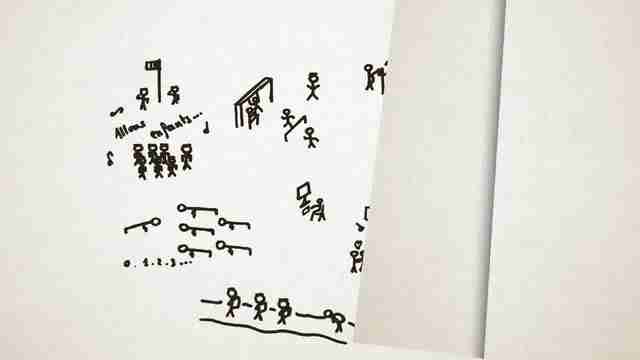 Allons enfants...
0.1.2.3...